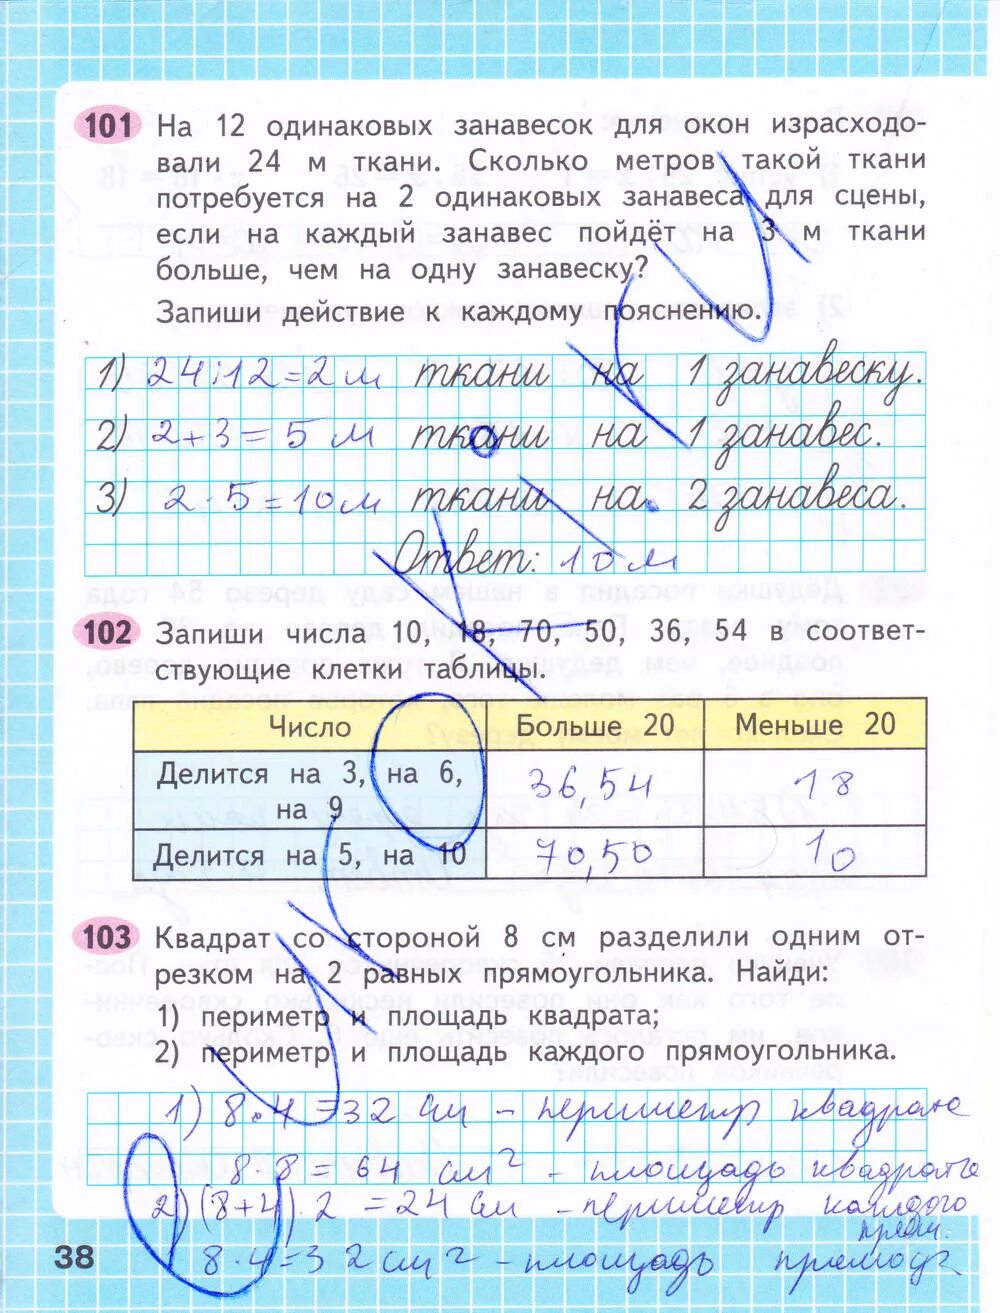 101 На 12 одинаковых занавесок для окон израсходо-
вали 24 м ткани. Сколько метров такой ткани
потребуется на 2 одинаковых занавеса для сцены,
если на каждый занавес пойдёт на 3 м ткани
больше, чем на одну занавеску?
Запиши действие к каждому пояснению.
1) 24:12=2 м ткани на 1 занавеску.
2) 2+3=5 м ткани на 1 занавес.
3) 2·5=10 м ткани на 2 занавеса.
Ответ: 10 м
102 Запиши числа 10, 18, 70, 50, 36, 54 в соответ-
ствующие клетки таблицы.
Число Больше 20 Меньше 20
Делится на 3, на 6,
на 9 36,54 18
Делится на 5, на 10 70,50 10
103 Квадрат со стороной 8 см разделили одним от-
резком на 2 равных прямоугольника. Найди:
1) периметр и площадь квадрата;
2) периметр и площадь каждого прямоугольника.
1) 8·4=32 см – периметр квадрата
8·8=64 см² – площадь квадрата
2) (8+4)·2=24 см – периметр каждого
прям.
38 8·4=32 см² – площадь